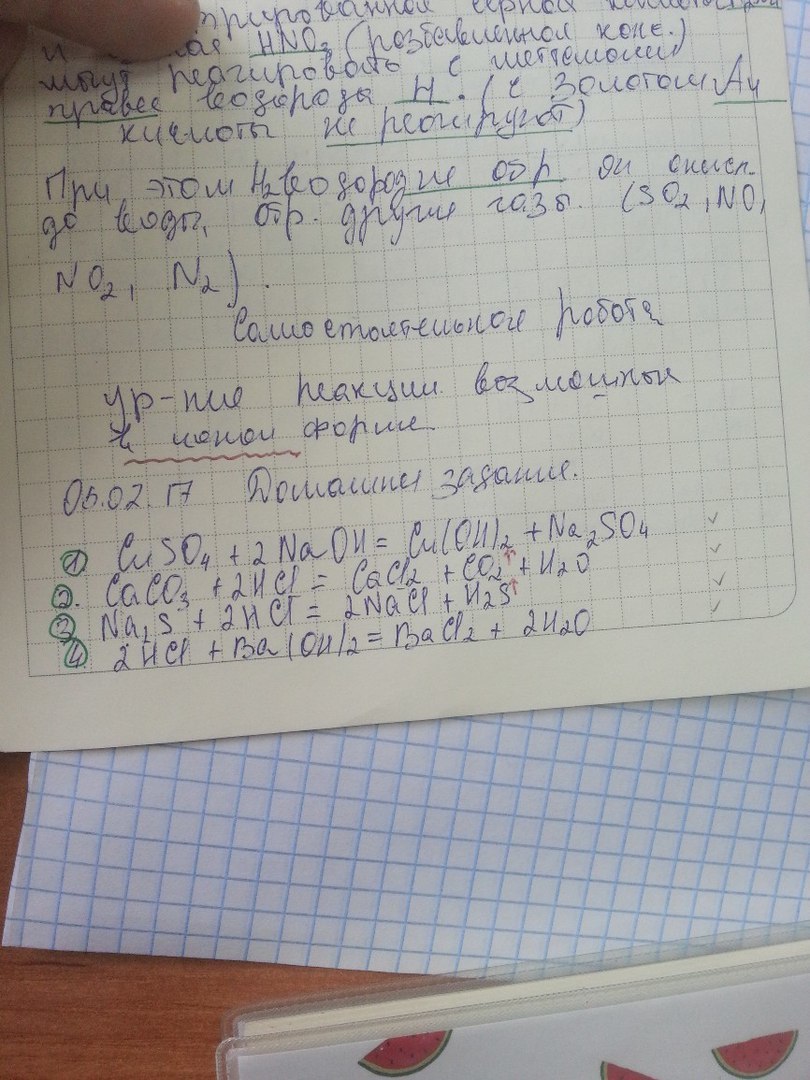 и HNO3 (разбавленной конс.)
могут реагировать с металлами
правее водорода H. (с золотом Au
кислоты не реагируют)
При этом H2 водород не обр. он окисл.
до воды, отр. другие газы. (SO2, NO,
NO2, N2).
Самостоятельная работа
ур-ние реакции возможных
в ионной форме.
05.02.17 Домашнее задание.
1) CuSO4 + 2NaOH = Cu(OH)2 + Na2SO4 ✓
2. CaCO3 + 2HCl = CaCl2 + CO2↑ + H2O ✓
3) Na2S + 2HCl = 2NaCl + H2S↑ ✓
4. 2HCl + Ba(OH)2 = BaCl2 + 2H2O ✓